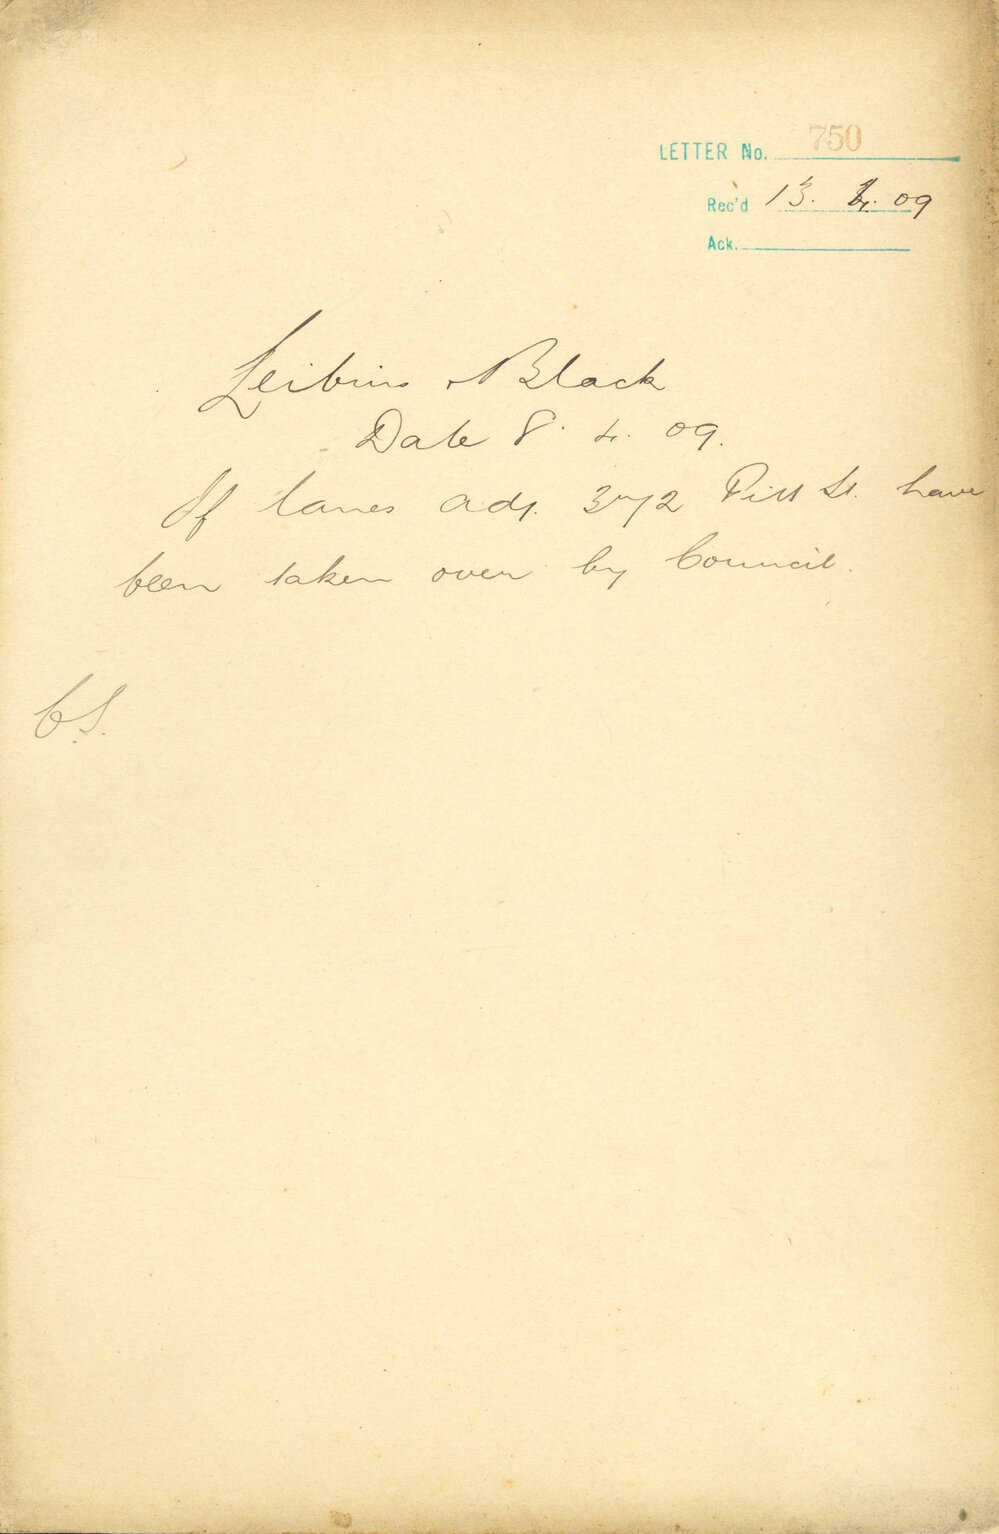 LETTER No. 750
Rec'd 13. 4. 09
Ack.
Leibius & Black
Date 8. 4. 09.
If lanes adj. 372 Pitt St. have
been taken over by Council.
C.S.